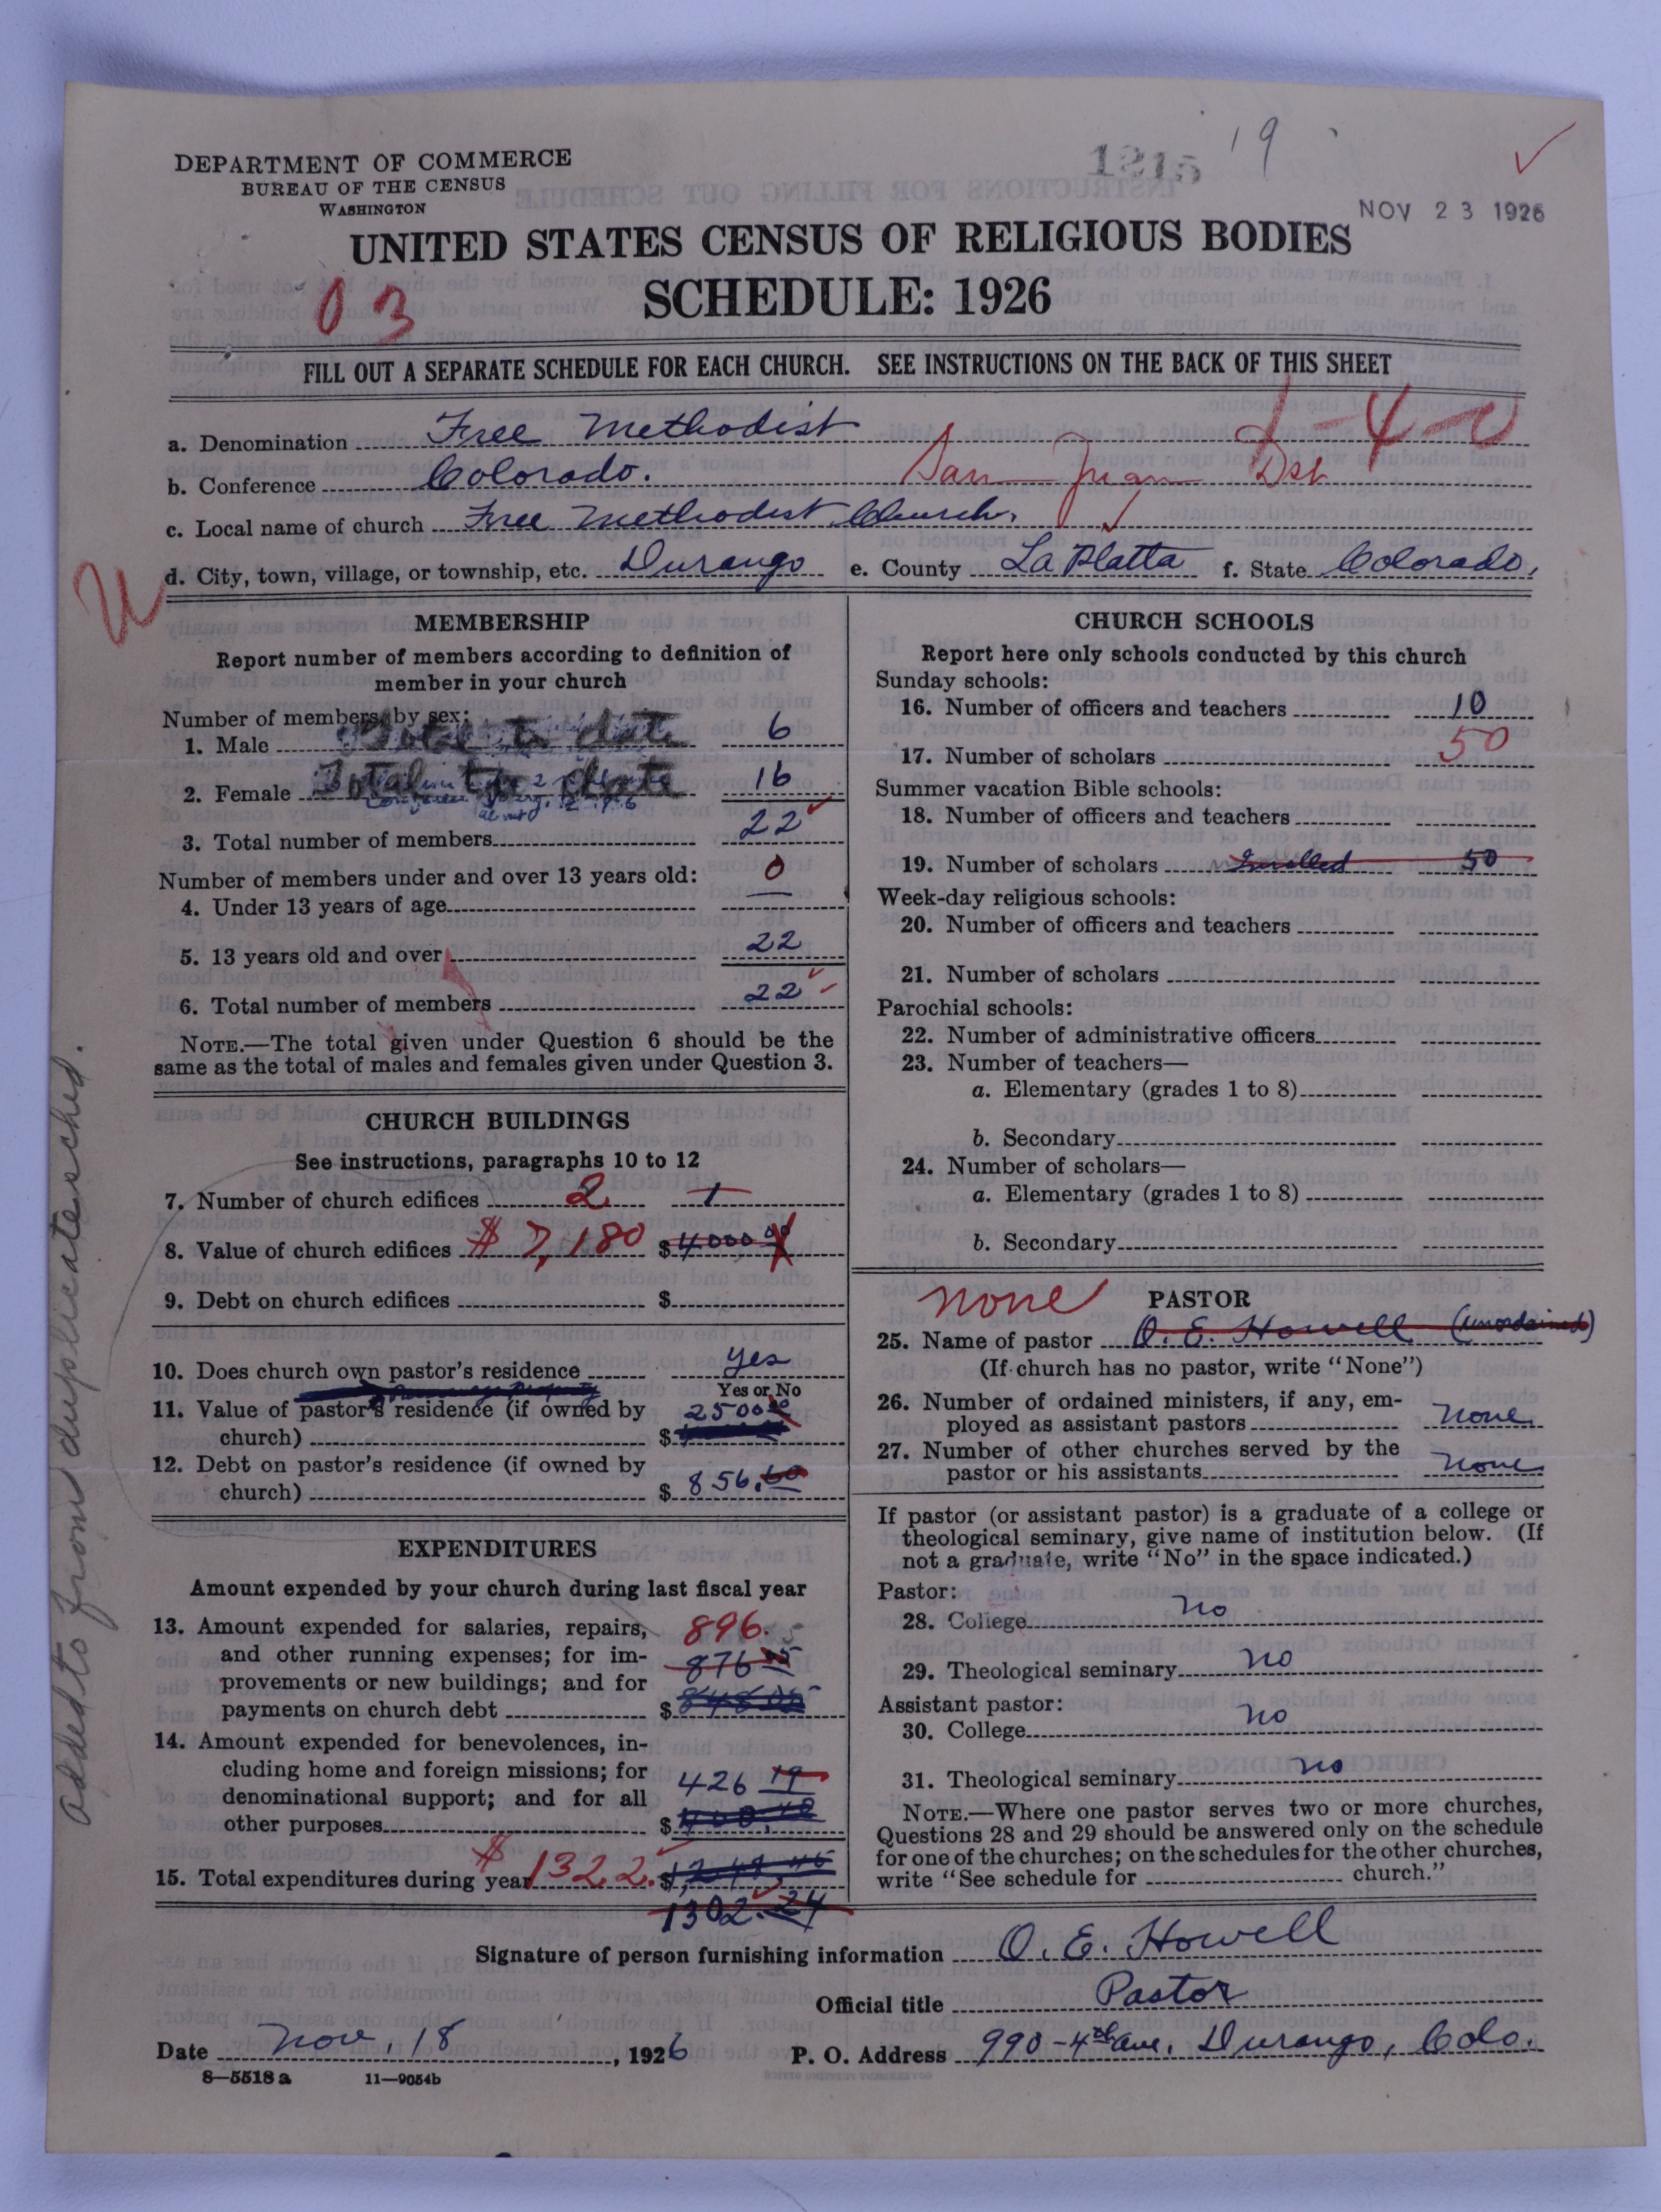 DEPARTMENT OF COMMERCE
BUREAU OF THE CENSUS
WASHINGTON
1215 19
NOV 23 1926
UNITED STATES CENSUS OF RELIGIOUS BODIES
SCHEDULE: 1926
03
FILL OUT A SEPARATE SCHEDULE FOR EACH CHURCH. SEE INSTRUCTIONS ON THE BACK OF THIS SHEET
1-4-2
a. Denomination Free Methodist
b. Conference Colorado. San Juan Dst
c. Local name of church Free Methodist Church.
d. City, town, village, or township, etc. Durango e. County La Platta f. State Colorado.
U
MEMBERSHIP
Report number of members according to definition of
member in your church
Number of members by sex:
1. Male Total to date 6
2. Female Total to date 16
3. Total number of members 22
Number of members under and over 13 years old:
4. Under 13 years of age 0
5. 13 years old and over 22
6. Total number of members 22
NOTE.—The total given under Question 6 should be the
same as the total of males and females given under Question 3.
CHURCH BUILDINGS
See instructions, paragraphs 10 to 12
7. Number of church edifices 2 1
8. Value of church edifices $7,180 $4000 00
9. Debt on church edifices $
10. Does church own pastor's residence yes
Yes or No
11. Value of pastor's residence (if owned by
church) $ 2500 00
12. Debt on pastor's residence (if owned by
church) $ 856.60
EXPENDITURES
Amount expended by your church during last fiscal year
13. Amount expended for salaries, repairs,
and other running expenses; for im-
provements or new buildings; and for
payments on church debt $
896.
876
14. Amount expended for benevolences, in-
cluding home and foreign missions; for
denominational support; and for all
other purposes $
426 19
15. Total expenditures during year $1322. $
1302.24
CHURCH SCHOOLS
Report here only schools conducted by this church
Sunday schools:
16. Number of officers and teachers 10
17. Number of scholars 50
Summer vacation Bible schools:
18. Number of officers and teachers
19. Number of scholars Enrolled 50
Week-day religious schools:
20. Number of officers and teachers
21. Number of scholars
Parochial schools:
22. Number of administrative officers
23. Number of teachers—
a. Elementary (grades 1 to 8)
b. Secondary
24. Number of scholars—
a. Elementary (grades 1 to 8)
b. Secondary
none PASTOR
25. Name of pastor O. E. Howell (unordained)
(If church has no pastor, write "None")
26. Number of ordained ministers, if any, em-
ployed as assistant pastors none
27. Number of other churches served by the
pastor or his assistants none
If pastor (or assistant pastor) is a graduate of a college or
theological seminary, give name of institution below. (If
not a graduate, write "No" in the space indicated.)
Pastor:
28. College no
29. Theological seminary no
Assistant pastor:
30. College no
31. Theological seminary no
NOTE.—Where one pastor serves two or more churches,
Questions 28 and 29 should be answered only on the schedule
for one of the churches; on the schedules for the other churches,
write "See schedule for church."
Signature of person furnishing information O. E. Howell
Official title Pastor
Date Nov. 18, 1926 P. O. Address 990-4th ave. Durango, Colo.
8—5518 a 11—9054b
Added to from duplicate sched.